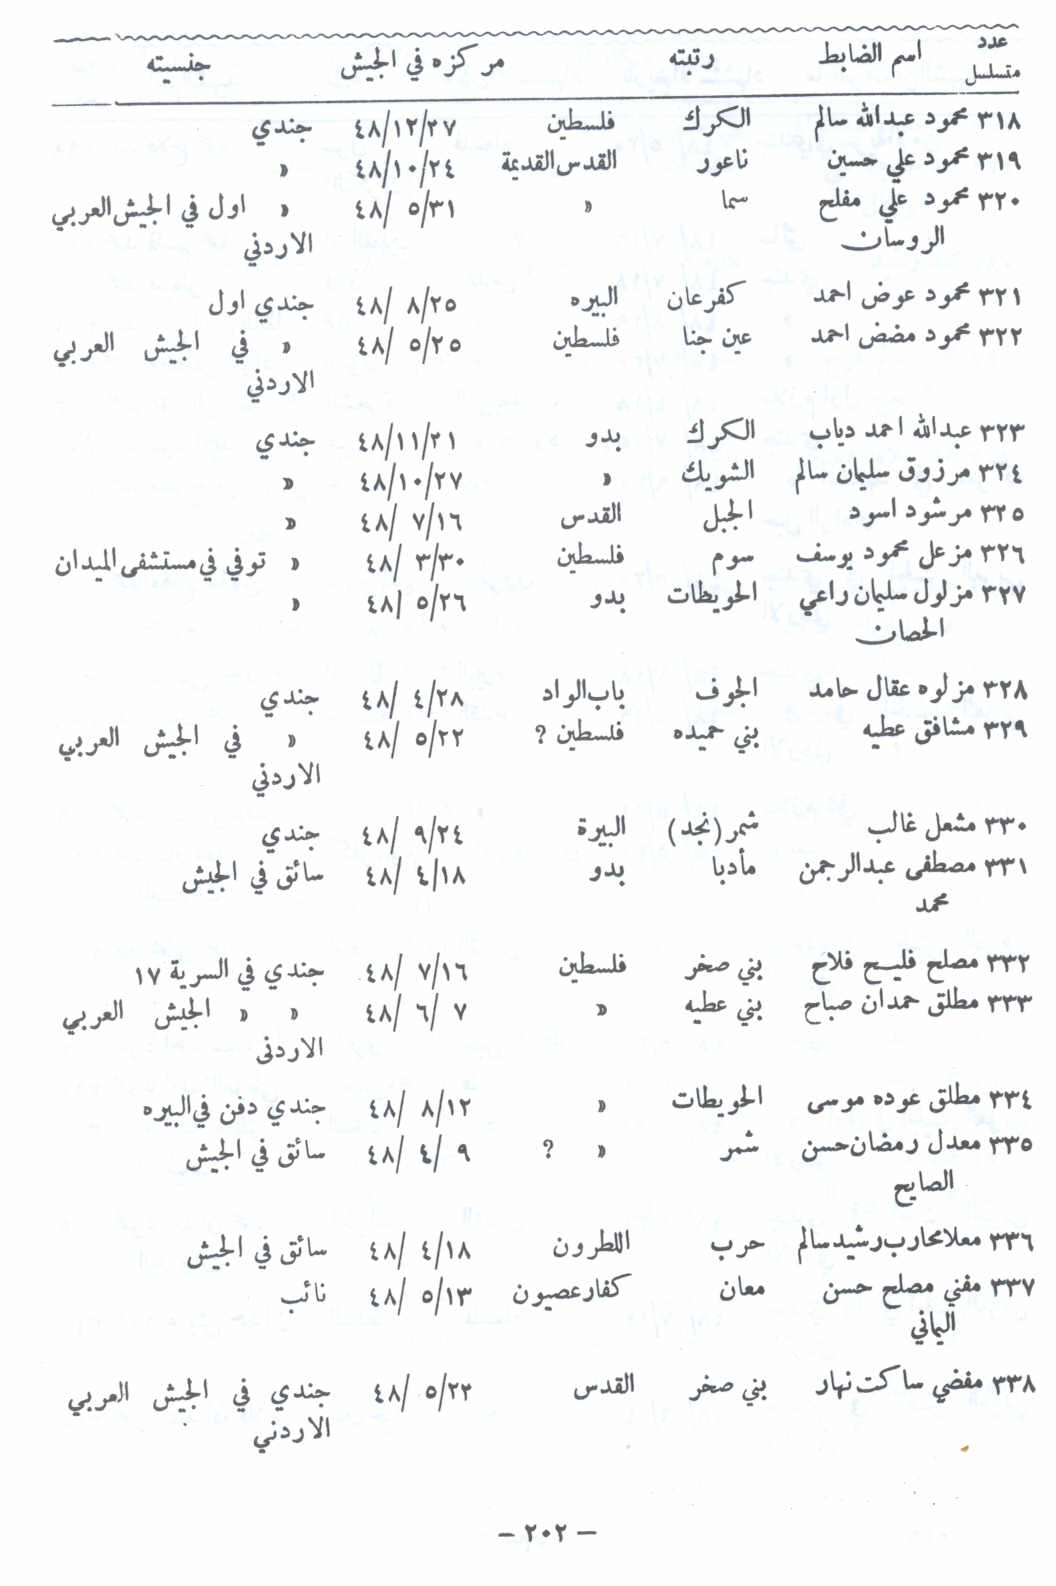 عدد متسلسل اسم الضابط رتبته مركزه في الجيش جنسيته
٣١٨ محمود عبدالله سالم الكرك فلسطين ٤٨/١٢/٢٧ جندي
٣١٩ محمود علي حسين ناعور القدس القديمة ٤٨/١٠/٢٤ »
٣٢٠ محمود علي مفلح سما » ٤٨/ ٥/٣١ » اول في الجيش العربي
الروسان الاردني
٣٢١ محمود عوض احمد كفرعان البيره ٤٨/ ٨/٢٥ جندي اول
٣٢٢ محمود مضض احمد عين جنا فلسطين ٤٨/ ٥/٢٥ » في الجيش العربي
الاردني
٣٢٣ عبدالله احمد دياب الكرك بدو ٤٨/١١/٢١ جندي
٣٢٤ مرزوق سليمان سالم الشويك » ٤٨/١٠/٢٧ »
٣٢٥ مرشود اسود الجبل القدس ٤٨/ ٧/١٦ »
٣٢٦ مزعل محمود يوسف سوم فلسطين ٤٨/ ٣/٣٠ » توفي في مستشفى الميدان
٣٢٧ مزلول سليمان راعي الحويطات بدو ٤٨/ ٥/٢٦ »
الحصان
٣٢٨ مزلوه عقال حامد الجوف باب الواد ٤٨/ ٤/٢٨ جندي
٣٢٩ مشافق عطيه بني حميده فلسطين ? ٤٨/ ٥/٢٢ » في الجيش العربي
الاردني
٣٣٠ مشعل غالب شمر (نجد) البيرة ٤٨/ ٩/٢٤ جندي
٣٣١ مصطفى عبدالرحمن مأدبا بدو ٤٨/ ٤/١٨ سائق في الجيش
محمد
٣٣٢ مصلح فليح فلاح بني صخر فلسطين ٤٨/ ٧/١٦ جندي في السرية ١٧
٣٣٣ مطلق حمدان صباح بني عطيه » ٤٨/ ٦/ ٧ » » الجيش العربي
الاردنى
٣٣٤ مطلق عوده موسى الحويطات » ٤٨/ ٨/١٢ جندي دفن في البيره
٣٣٥ معدل رمضان حسن شمر » ? ٤٨/ ٤/ ٩ سائق في الجيش
الصايح
٣٣٦ معلا محارب رشيد سالم حرب اللطرون ٤٨/ ٤/١٨ سائق في الجيش
٣٣٧ مفني مصلح حسن معان كفار عصيون ٤٨/ ٥/١٣ نائب
اليماني
٣٣٨ مفضي ساكت نهار بني صخر القدس ٤٨/ ٥/٢٢ جندي في الجيش العربي
الاردني
– ٢٠٢ –